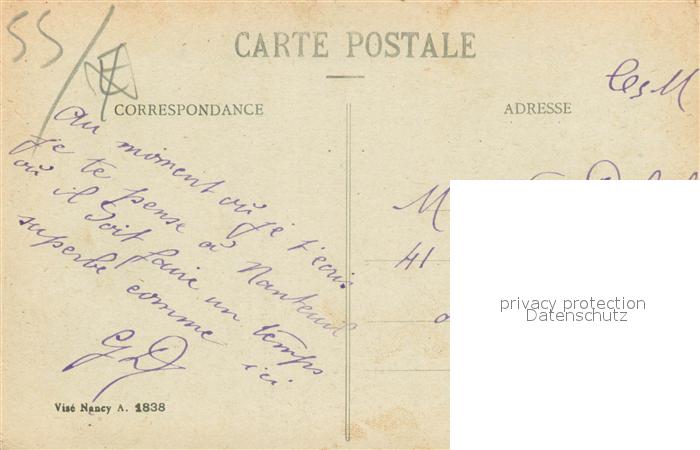 55/
CARTE POSTALE
CORRESPONDANCE
ADRESSE
Au moment où je t'écris
je te pense à Nanteuil
où il doit faire un temps
superbe comme ici
GD
Visé Nancy A. 1838
M
41
privacy protection
Datenschutz